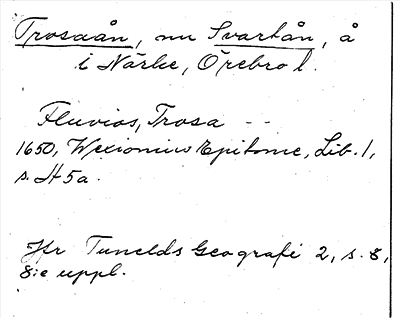 Trosaån, nu Svartån, å
i Närke, Örebro l.
Fluvios, Trosa --
1650, Wexionius Epitome, Lib. 1,
s. H5a.
Jfr Tunelds Geografi 2, s. 8,
8:e uppl.